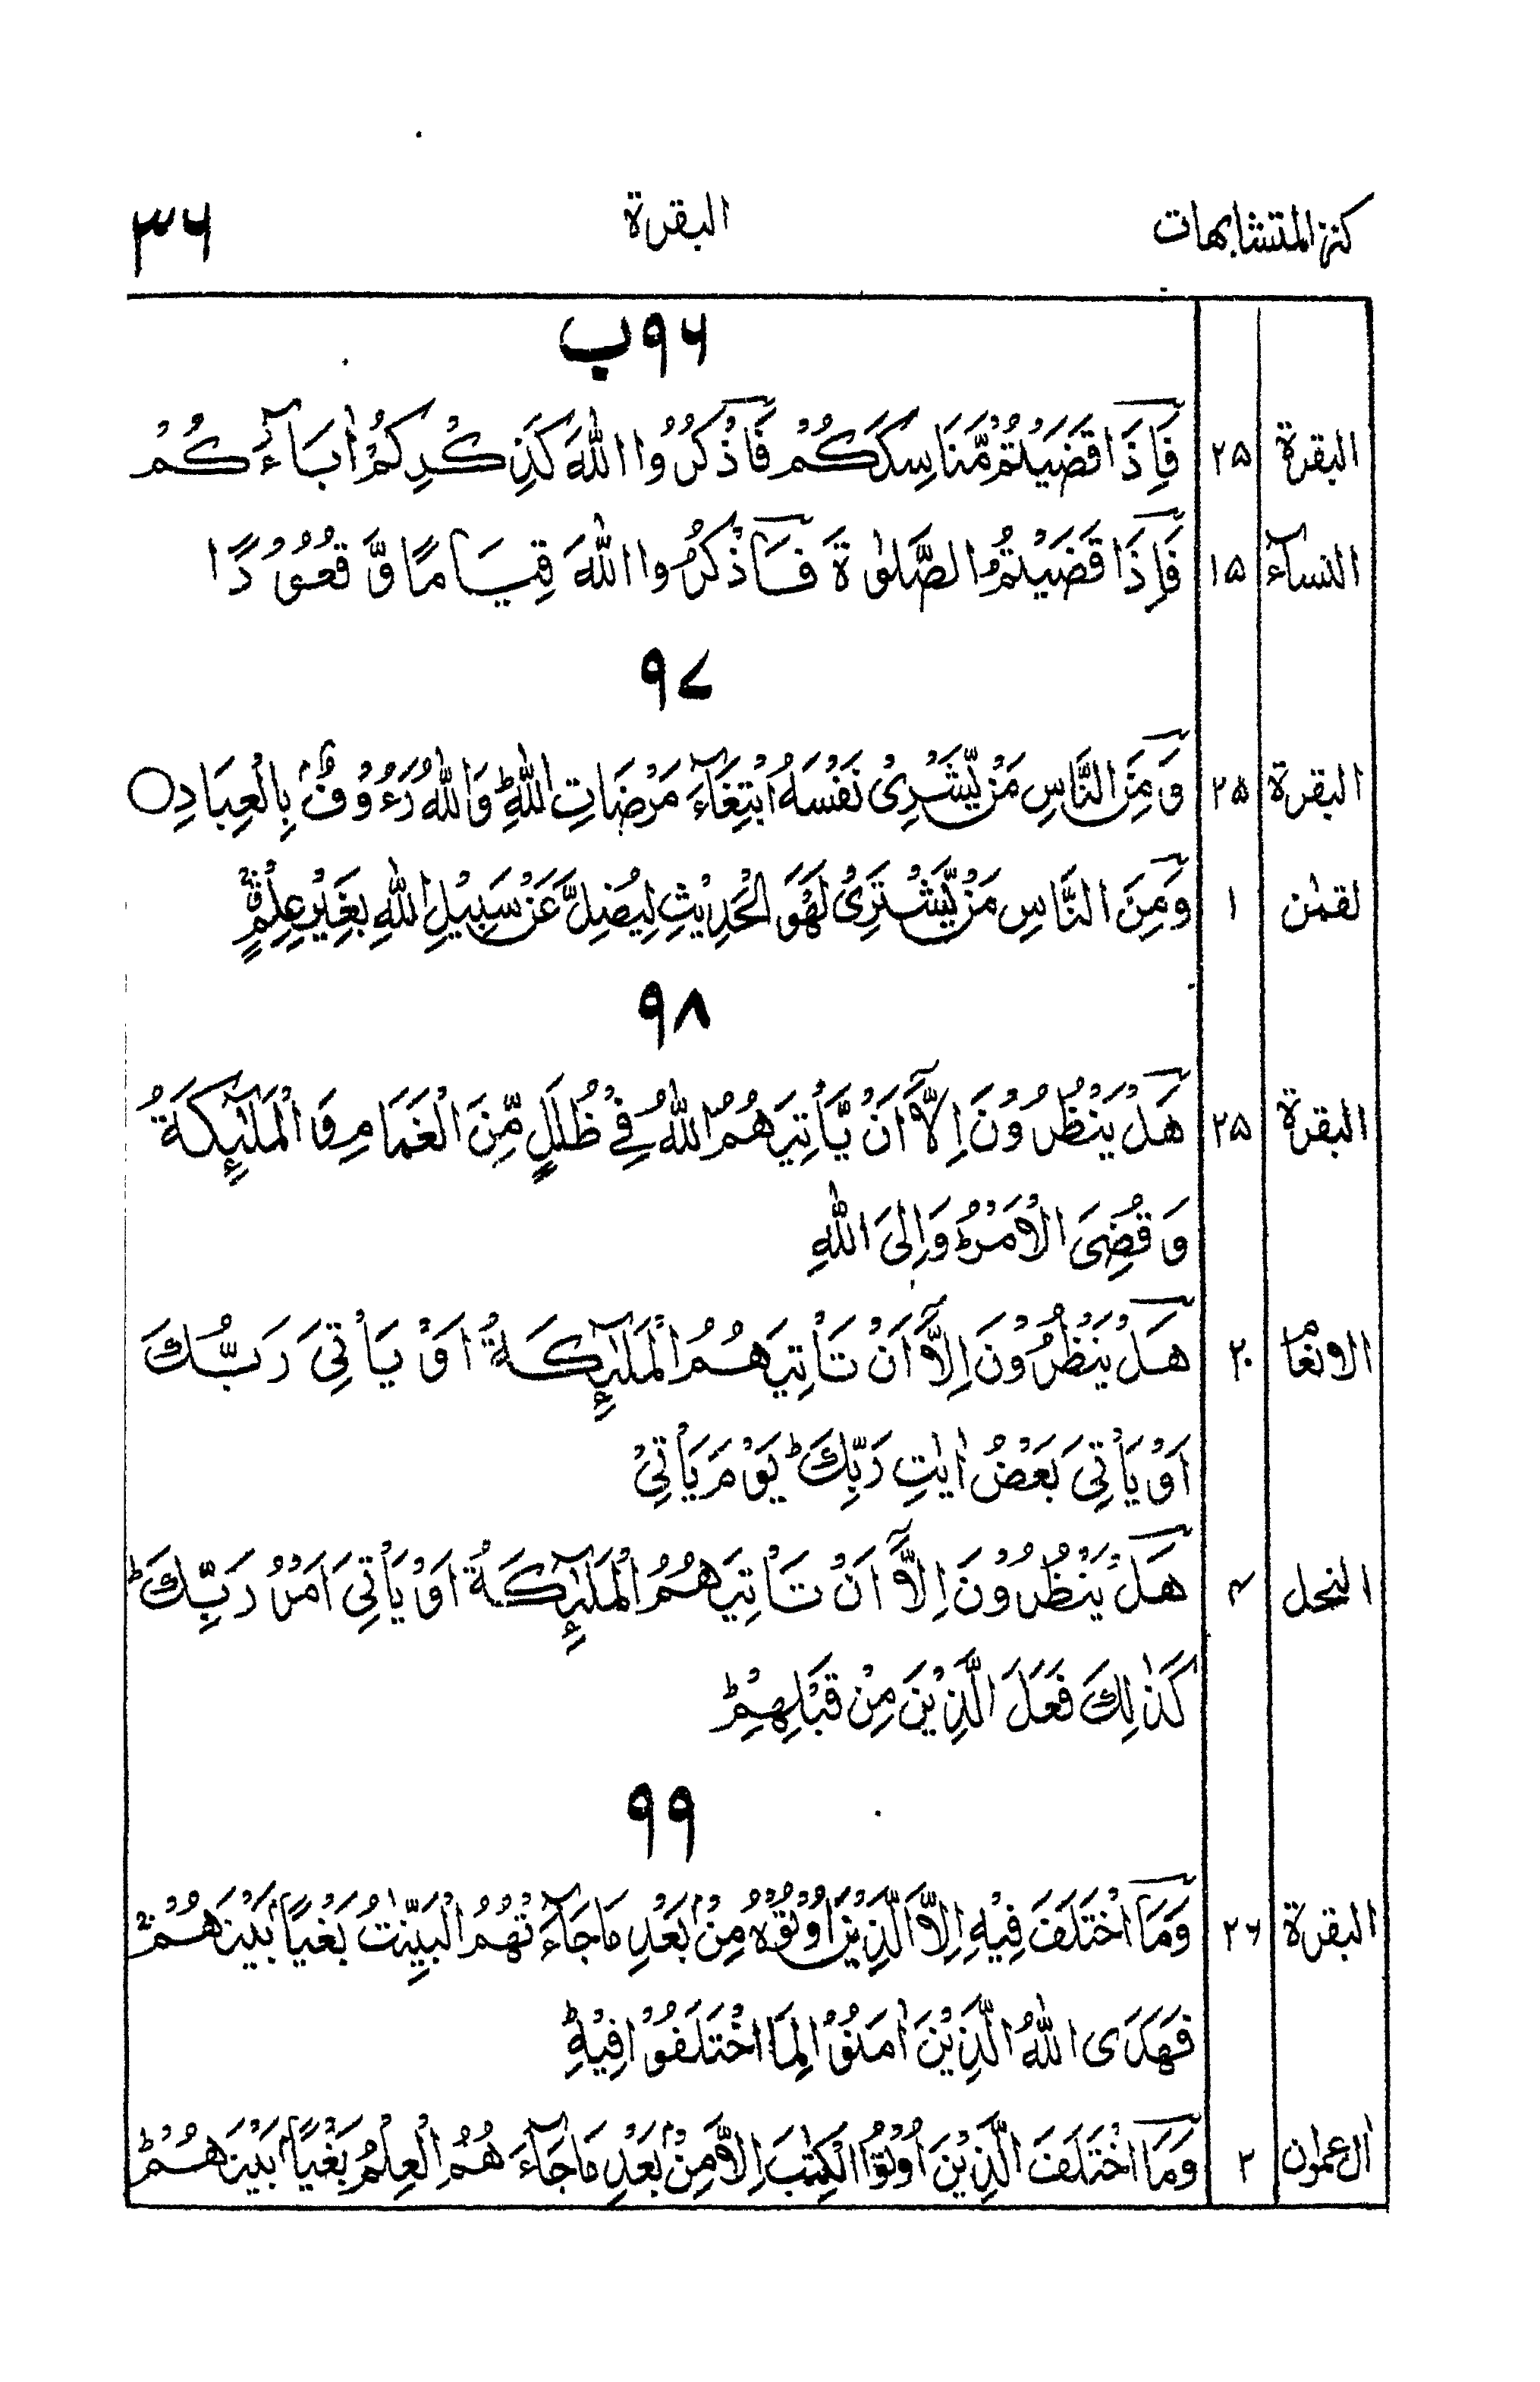 كنز المتشابهات البقرة ٣٦
٩٦ب
البقرة ٢٥ فَاِذَا قَضَيْتُمْ مَّنَاسِكَكُمْ فَاذْكُرُوا اللّٰهَ كَذِكْرِكُمْ اٰبَآءَكُمْ
النسآء ١٥ فَاِذَا قَضَيْتُمُ الصَّلٰوةَ فَاذْكُرُوا اللّٰهَ قِيَامًا وَّ قُعُوْدًا
٩٧
البقرة ٢٥ وَمِنَ النَّاسِ مَنْ يَّشْرِيْ نَفْسَهُ ابْتِغَآءَ مَرْضَاتِ اللّٰهِؕ وَاللّٰهُ رَءُوْفٌۢ بِالْعِبَادِ○
لقمٰن ١ وَمِنَ النَّاسِ مَنْ يَّشْتَرِيْ لَهْوَ الْحَدِيْثِ لِيُضِلَّ عَنْ سَبِيْلِ اللّٰهِ بِغَيْرِ عِلْمٍ ۖق
٩٨
البقرة ٢٥ هَلْ يَنْظُرُوْنَ اِلَّاۤ اَنْ يَّاْتِيَهُمُ اللّٰهُ فِيْ ظُلَلٍ مِّنَ الْغَمَامِ وَالْمَلٰٓئِكَةُ
وَقُضِيَ الْاَمْرُؕ وَاِلَى اللّٰهِ
الانعام ٢٠ هَلْ يَنْظُرُوْنَ اِلَّاۤ اَنْ تَاْتِيَهُمُ الْمَلٰٓئِكَةُ اَوْ يَاْتِيَ رَبُّكَ
اَوْ يَاْتِيَ بَعْضُ اٰيٰتِ رَبِّكَؕ يَوْمَ يَاْتِيْ
النحل ٤ هَلْ يَنْظُرُوْنَ اِلَّاۤ اَنْ تَاْتِيَهُمُ الْمَلٰٓئِكَةُ اَوْ يَاْتِيَ اَمْرُ رَبِّكَؕ
كَذٰلِكَ فَعَلَ الَّذِيْنَ مِنْ قَبْلِهِمْؕ
٩٩
البقرة ٢٦ وَمَا اخْتَلَفَ فِيْهِ اِلَّا الَّذِيْنَ اُوْتُوْهُ مِنْۢ بَعْدِ مَا جَآءَتْهُمُ الْبَيِّنٰتُ بَغْيًاۢ بَيْنَهُمْۚ
فَهَدَى اللّٰهُ الَّذِيْنَ اٰمَنُوْا لِمَا اخْتَلَفُوْا فِيْهِؕ
اٰل عمرٰن ٢ وَمَا اخْتَلَفَ الَّذِيْنَ اُوْتُوا الْكِتٰبَ اِلَّا مِنْۢ بَعْدِ مَا جَآءَهُمُ الْعِلْمُ بَغْيًاۢ بَيْنَهُمْؕ